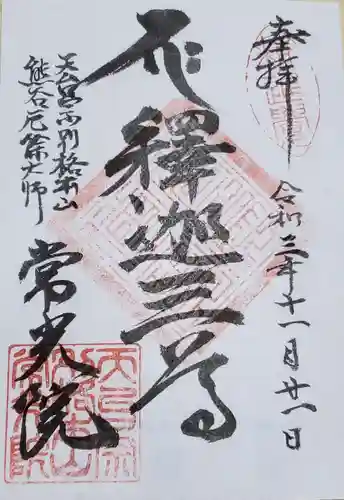 奉拝
令和三年十一月廿一日
釋迦三尊
天台宗別格本山
熊谷厄除大師
常光院